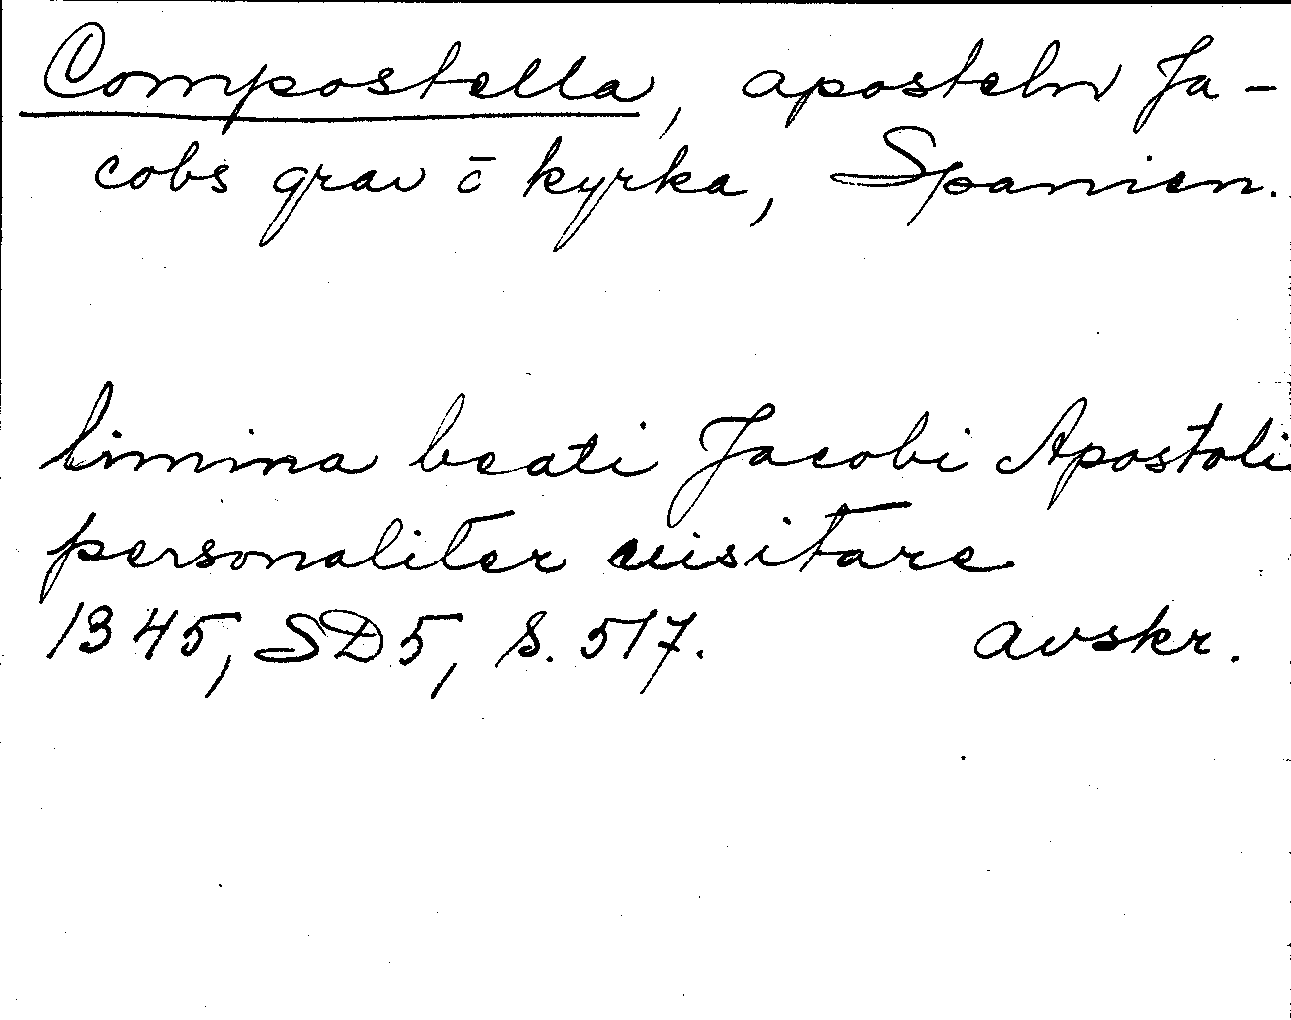 Compostella, aposteln Ja-
cobs grav c̄ kyrka, Spanien.
limina beati Jacobi Apostoli
personaliter uisitare
1345, SD 5, s. 517. avskr.